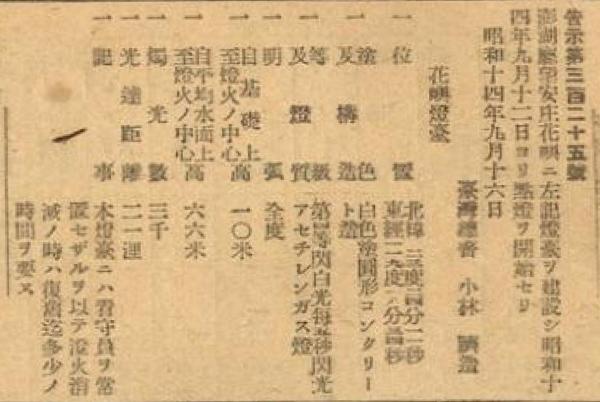 告示第三百二十五號
澎湖廳望安庄花嶼ニ左記燈臺ヲ建設シ昭和十
四年九月十二日ヨリ點燈ヲ開始セリ
昭和十四年九月十六日
臺灣總督 小林 躋造
花嶼燈臺
一 位置 北緯
東經
一 塗色及構造 白色塗圓形コンクリー
ト造
一 等級及燈質 閃白光每 秒閃光
アセチレンガス燈
一 明弧 全度
一 自基礎上至燈火ノ中心高 一〇米
自平均水面上至燈火ノ中心高 六六米
一 燭光數 三千
一 光達距離 二一浬
一 記事 本燈臺ニハ看守員ヲ常
置セザルヲ以テ燈火消
滅ノ時ハ復舊迄多少ノ
時間ヲ要ス